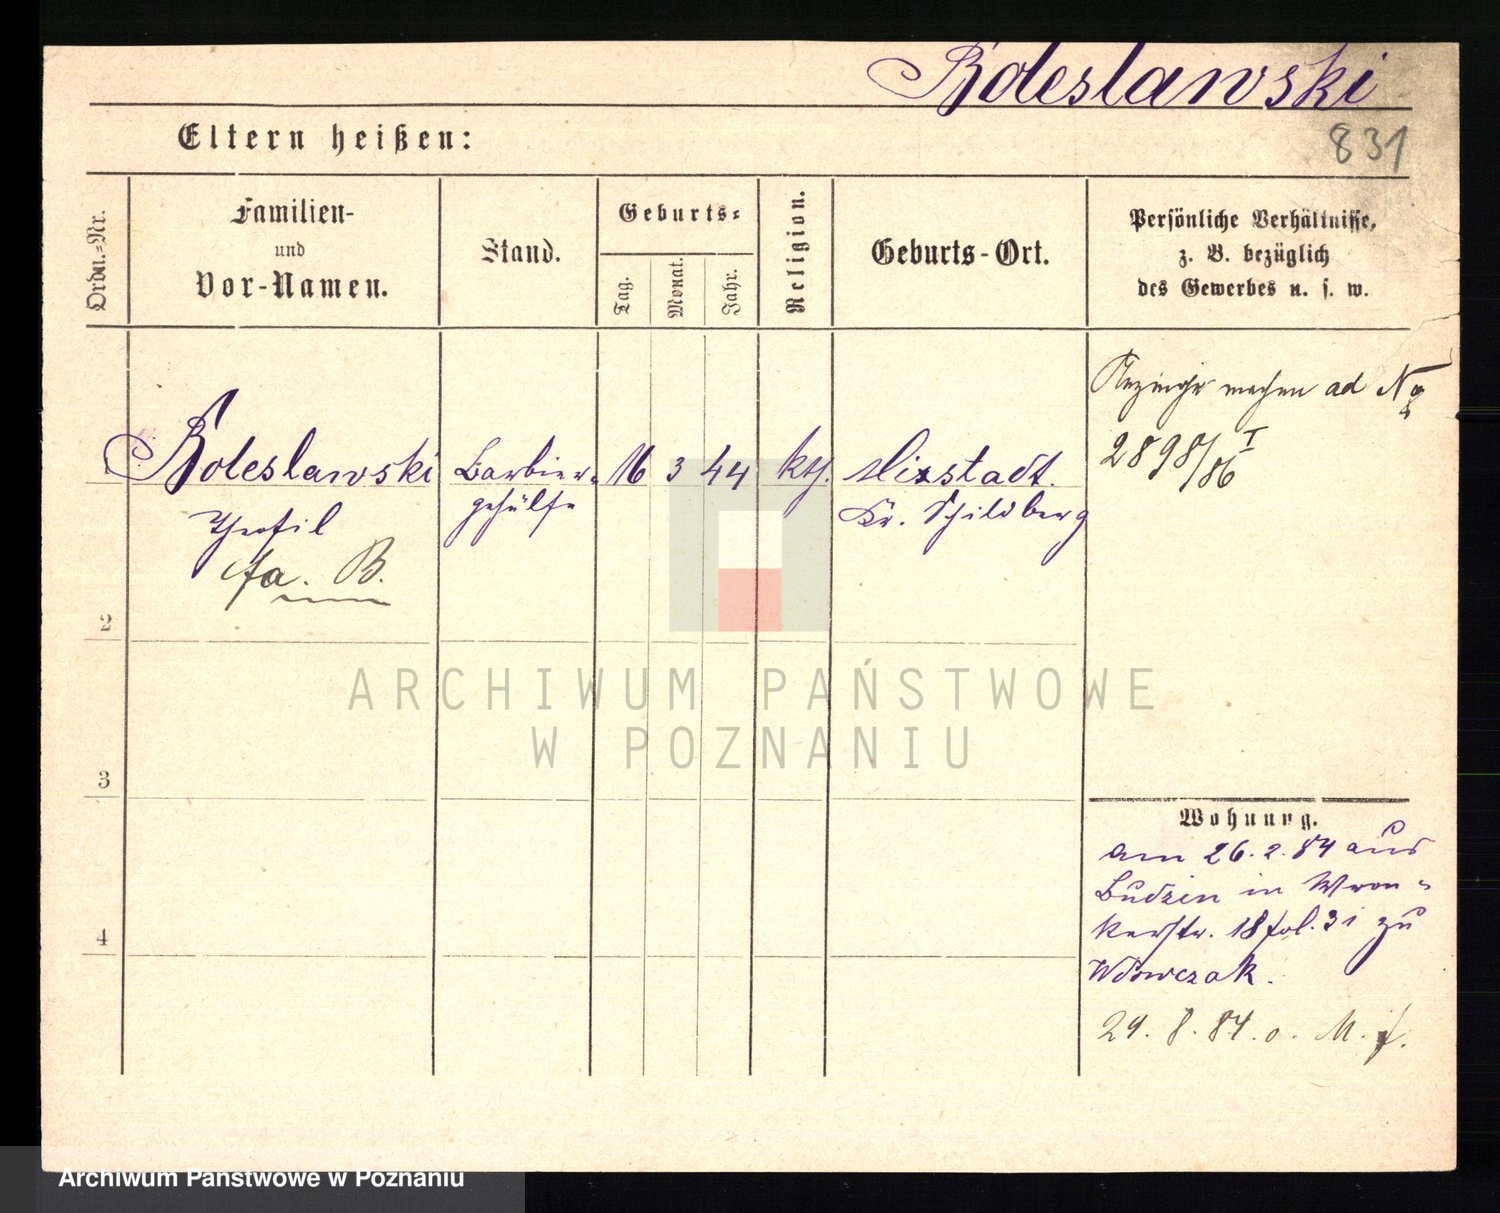 Boleslawski
831
Eltern heißen:
Ordn.-Nr.
Familien-
und
Vor-Namen.
Stand.
Geburts-
Tag.
Monat.
Jahr.
Religion.
Geburts-Ort.
Persönliche Verhältnisse,
z. B. bezüglich
des Gewerbes u. s. w.
1 Boleslawski Barbier- 16 3 44 kth. Mixstadt.
Theofil gehülfe Kr. Schildberg
fa. B.
machen ad
2898/86 I
2
3
4
Wohnung.
am 26. 2. 84 aus
Budzin in Wron-
kerstr. 18 fol. 31 zu
29. 8. 84. o. M. f.
ARCHIWUM PAŃSTWOWE
W POZNANIU
Archiwum Państwowe w Poznaniu